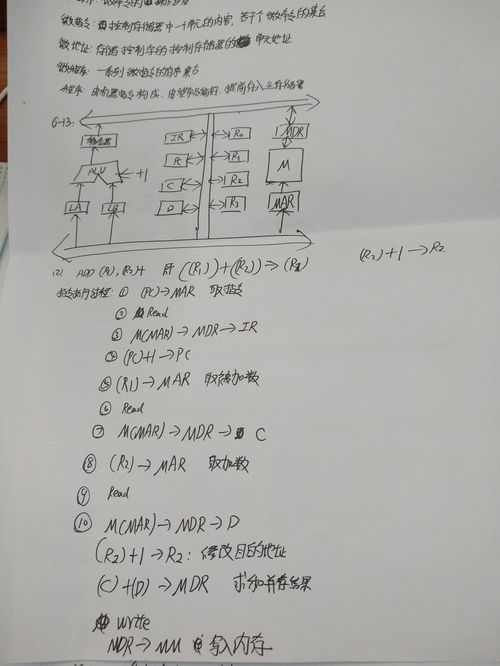 微指令: 控制存储器中一个单元的内容, 若干个微命令的集合
微地址: 存储控制字的控制存储器的单元地址
微程序: 一系列微指令的有序集合
程序: 由机器指令构成, 由程序员编好, 提前存入主存储器
6-13:
移位器
IR
R0
MDR
ALU
+1
PC
R1
M
C
R2
LA
LB
D
R3
MAR
(2) ADD (R1), (R2)+ 即 ((R1))+((R2))→(R2) (R2)+1→R2
指令执行过程: ① (PC)→MAR 取指令
② Read
③ M(MAR)→MDR→IR
④ (PC)+1→PC
⑤ (R1)→MAR 取被加数
⑥ Read
⑦ M(MAR)→MDR→C
⑧ (R2)→MAR 取加数
⑨ Read
⑩ M(MAR)→MDR→D
(R2)+1→R2: 修改目的地址
(C)+(D)→MDR 求和并存结果
write
MDR→MM 写入内存